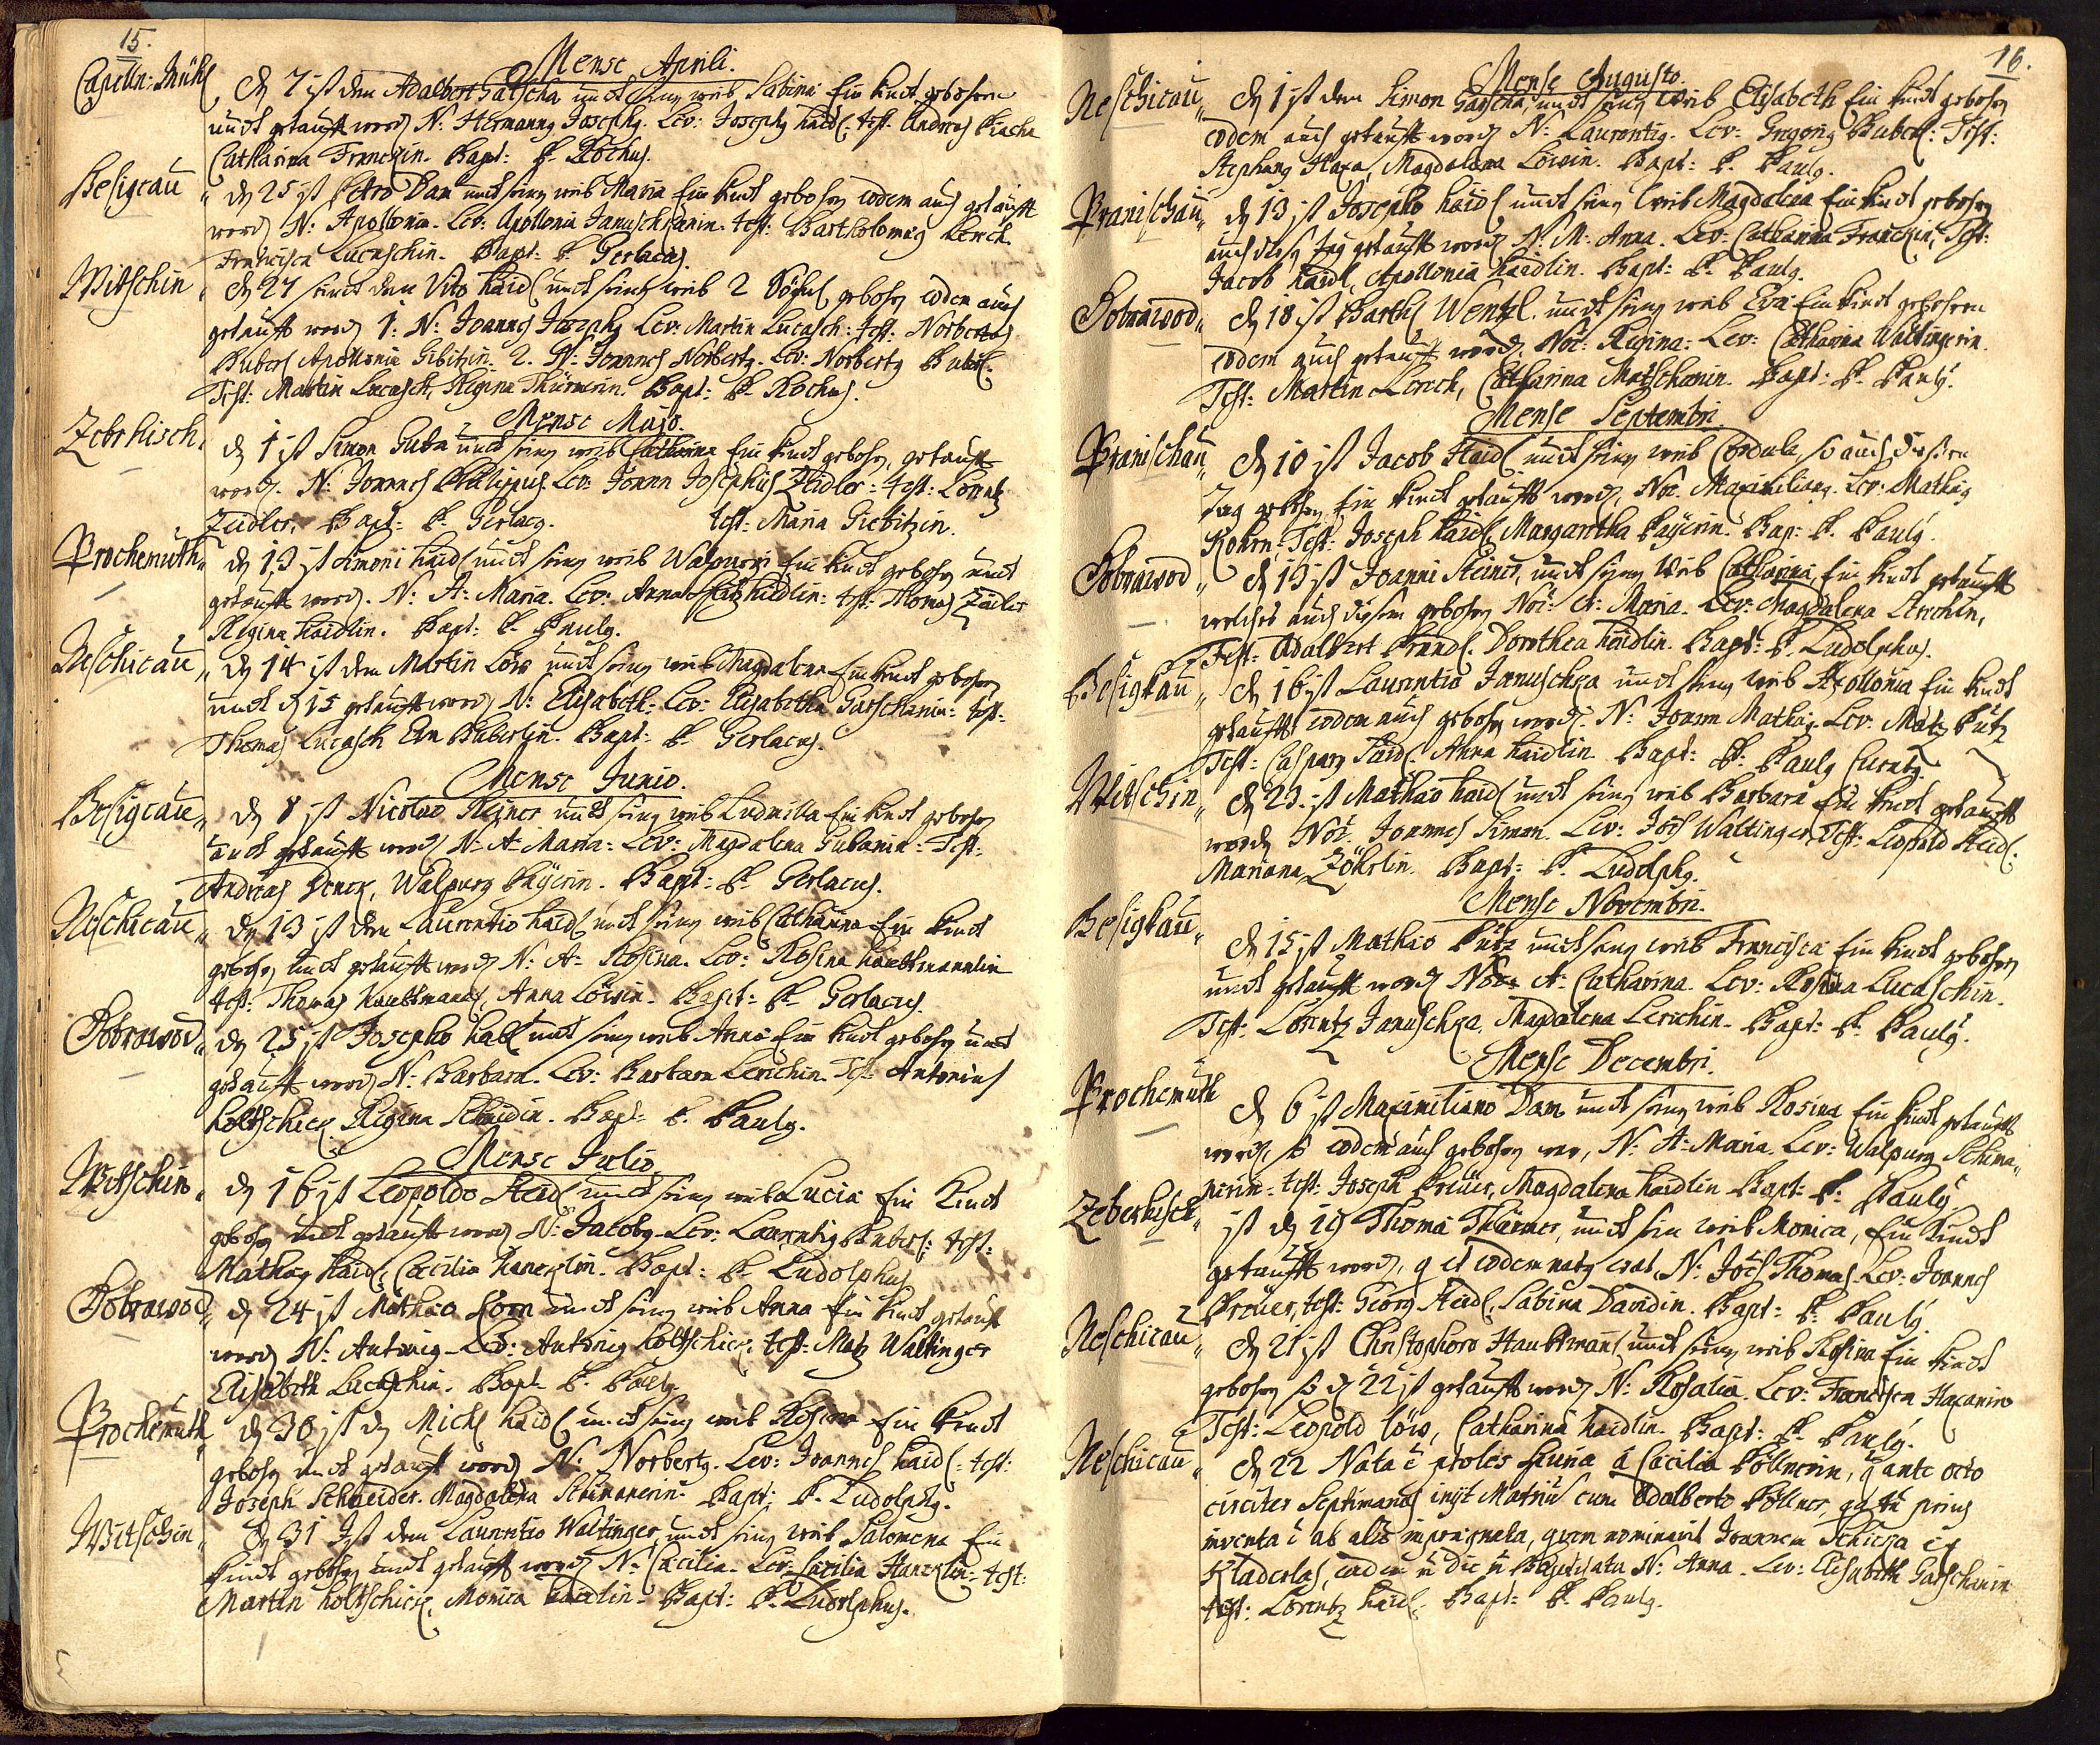 15.
Mense Aprili.
Capelln: Mühl den 7 ist dem Adalbert Gatscha undt seinem weib Sabina Ein kindt gebohren
undt getaufft worden N: Hermannus Josephus. Lev: Josephus Haidl: test: Andreas
Catharina Franckin. Bapt: P. Rochus.
Besigcau den 25 ist Petro Dam undt seinem weib Maria Ein kindt gebohren eodem auch getaufft
worden N: Apollonia. Lev: Apollonia Januschkanin. test: Bartholomeus Lerch.
Francisca Lucaschin. Bapt: P. Gerlacus.
Witschin den 27 seindt dem Vito Haidl undt seinem weib 2 Söhnl gebohren eodem auch
getaufft worden 1: N: Joannes Josephus Lev: Martin Lucasch: test: Norbertus
Buberl Apollonia Gibitzin. 2. N: Joannes Norbertus. Lev: Norbertus Buberl.
Test: Martin Lucasch, Regina Thürmerin. Bapt: P. Rochus.
Mense Majo.
Zebrhisch. den 1 ist Simon Guba undt seinem weib Catharina Ein kindt gebohren, getaufft
worden. N: Joannes Philippus. Lev: Joann Josephus Zeidler: test: Lorentz
Zeidler, Bapt: P. Gerlacus. test: Maria Giebitzin.
Prochemuth den 13 ist Simoni Haidl undt seinem weib Walpurgi Ein kindt gebohren undt
getaufft worden. N: A: Maria. Lev: Anna Haidlin: test: Thomas Zeidler
Regina Haidlin. Bapt: P. Paulus.
Neschicau den 14 ist dem Martin Löw undt seinem weib Magdalena Ein kindt gebohren
undt den 15 getaufft worden N: Elisabeth: Lev: Elisabetha Gatschanin: test:
Thomas Lucasch Eva Buberlin. Bapt: P. Gerlacus.
Mense Junio.
Besigcau den 8 ist Nicolao Reiner undt seinem weib Ludmilla Ein kindt gebohren
undt getaufft worden N: A: Maria: Lev: Magdalena Gubanin: Test:
Andreas Denck, Walpurg Payerin. Bapt: P. Gerlacus.
Neschicau den 13 ist dem Laurentio Haidl undt seinem weib Catharina Ein kindt
gebohren undt getaufft worden N: A: Rosina. Lev: Rosina Haubtmannlin
test: Thomas Haubtmann, Anna Löwin. Bapt: P. Gerlacus.
Dobrawod den 25 ist Josepho Habl undt seinem weib Anna Ein kindt gebohren undt
getaufft worden N: Barbara. Lev: Barbara Lerichin. Test: Antonius
Holtschick, Regina Schmidin. Bapt: P. Paulus.
Mense Julio.
Witschin den 16 ist Leopoldo Steidl undt seinem weib Lucia Ein Kindt
gebohren undt getaufft worden N: Jacobus. Lev: Laurentius Buberl: test:
Mathias Haidl, Cæcilia Hanerlin. Bapt: P. Ludolphus
Dobrawod den 24 ist Mathæo Horn undt seinem weib Anna Ein kindt getaufft
worden N: Antonius. Lev: Antonius Holtschick. test: Matz Waltinger
Elisabeth Lucaschin. Bapt. P. Paulus.
Prochemuth den 30 ist dem Michl Haidl undt seinem weib Rosina Ein kindt
gebohren undt getaufft worden N: Norbertus. Lev: Joannes Haidl: test:
Joseph Schneider. Magdalena Schimanerin. Bapt: P. Ludolphus.
Witschin Den 31 Ist dem Laurentio Waltinger undt seinem weib Salomena Ein
kindt gebohren undt getaufft worden N: Cæcilia. Lev: Cæcilia Hanerlin: test:
Martin Holtschick, Monica Haidlin. Bapt: P. Ludolphus.
16.
Mense Augusto.
Neschicau den 1 ist dem Simon Gatscha undt seinem weib Elisabeth Ein kindt gebohren
eodem auch getaufft worden N: Laurentius. Lev: Gregorius Buberl: Test:
Stephanus Haxa, Magdalena Löwin. Bapt: P. Paulus.
Pranischau den 13 ist Josepho Haidl undt seinem weib Magdalena Ein kindt gebohren
auch diesen tag getaufft worden N: M: Anna. Lev: Catharina Franckin, Test:
Jacob Haidl, Apollonia Haidlin. Bapt: P. Paulus.
Dobrawod den 18 ist Barthl Wentzl undt seinem weib Eva Ein kindt gebohren
eodem auch getaufft worden. Noē: Regina: Lev: Catharina Waltingerin.
Test: Martin Lerch, Catharina Matschonin. Bapt: P. Paulus.
Mense Septembri.
Pranischau den 10 ist Jacob Haidl undt seinem weib Cordula, so auch diesen
Tag gebohren Ein kindt getaufft worden, Noē. Maximilianus. Lev: Mathias
Kohrn. Test: Joseph Haidl, Margaretha Payerin. Bap: P. Paulus.
Dobrawod den 13 ist Joanni Steiner, undt seinem Weib Catharina, Ein kindt getaufft
welches auch diesen gebohren Noē: A: Maria. Lev: Magdalena Lerchin,
Test: Adalbert Brandl. Dorothea Haidlin. Bapt: P. Ludolphus.
Besigkau den 16 ist Laurentio Januschka undt seinem weib Apollonia Ein kindt
getaufft eodem auch gebohren worden. N: Joann Mathias. Lev: Matz Pütz
Test: Casparus Haidl. Anna Haidlin. Bapt: P. Paulus Curatus.
Witschin den 23. ist Mathæo Haidl undt seinem weib Barbara Ein kindt getaufft
worden Noē: Joannes Simon. Lev: Joēs Waltinger, Test: Leopold Steidl.
Mariana Zöhrlin. Bapt: P. Ludolphus.
Mense Novembri.
Besigkau den 15 ist Mathæo Pütz undt seinem weib Francisca Ein kindt gebohren
undt getaufft worden Noē: A: Catharina. Lev: Rosina Lucaschin.
Test: Lorentz Januschka, Magdalena Lerichin. Bapt: P. Paulus.
Mense Decembri.
Prochemuth den 6 ist Maximiliano Dam undt seinem weib Rosina Ein kindt getaufft
worden, so eodem auch gebohren war, N: A: Maria. Lev: Walpurg Schima,,
nerin: test: Joseph Preüer, Magdalena Haidlin Bapt: P. Paulus
Zeberhisch ist den 19 Thoma Thürmer, undt sein weib Monica, Ein kindt
getaufft worden, q et eodem natus erat, N: Joēs Thomas. Lev: Joannes
Preüer, test: Georg Steidl, Sabina Davidin. Bapt: P. Paulus.
Neschicau den 21 ist Christophoro Haubtmann undt seinem weib Rosina Ein kindt
gebohren so den 22 ist getaufft worden N: Rosalia. Lev: Francisca Haxanin
Test: Leopold Löw, Catharina Haidlin. Bapt: P. Paulus.
Neschicau den 22 Nata ē proles spuria à Cæcilia Pöllnerin, q ante octo
circiter Septimanas inijt Matriū cum Adalberto Pöllner, q tū prius
inventa ē ab alio imprægnata, quem nominavit Joannem Schicka ex
Kladerlas, eadem die N: Anna. Lev: Elisabeth Gatschanin
test: Lorentz Haidl. Bapt: P. Paulus.